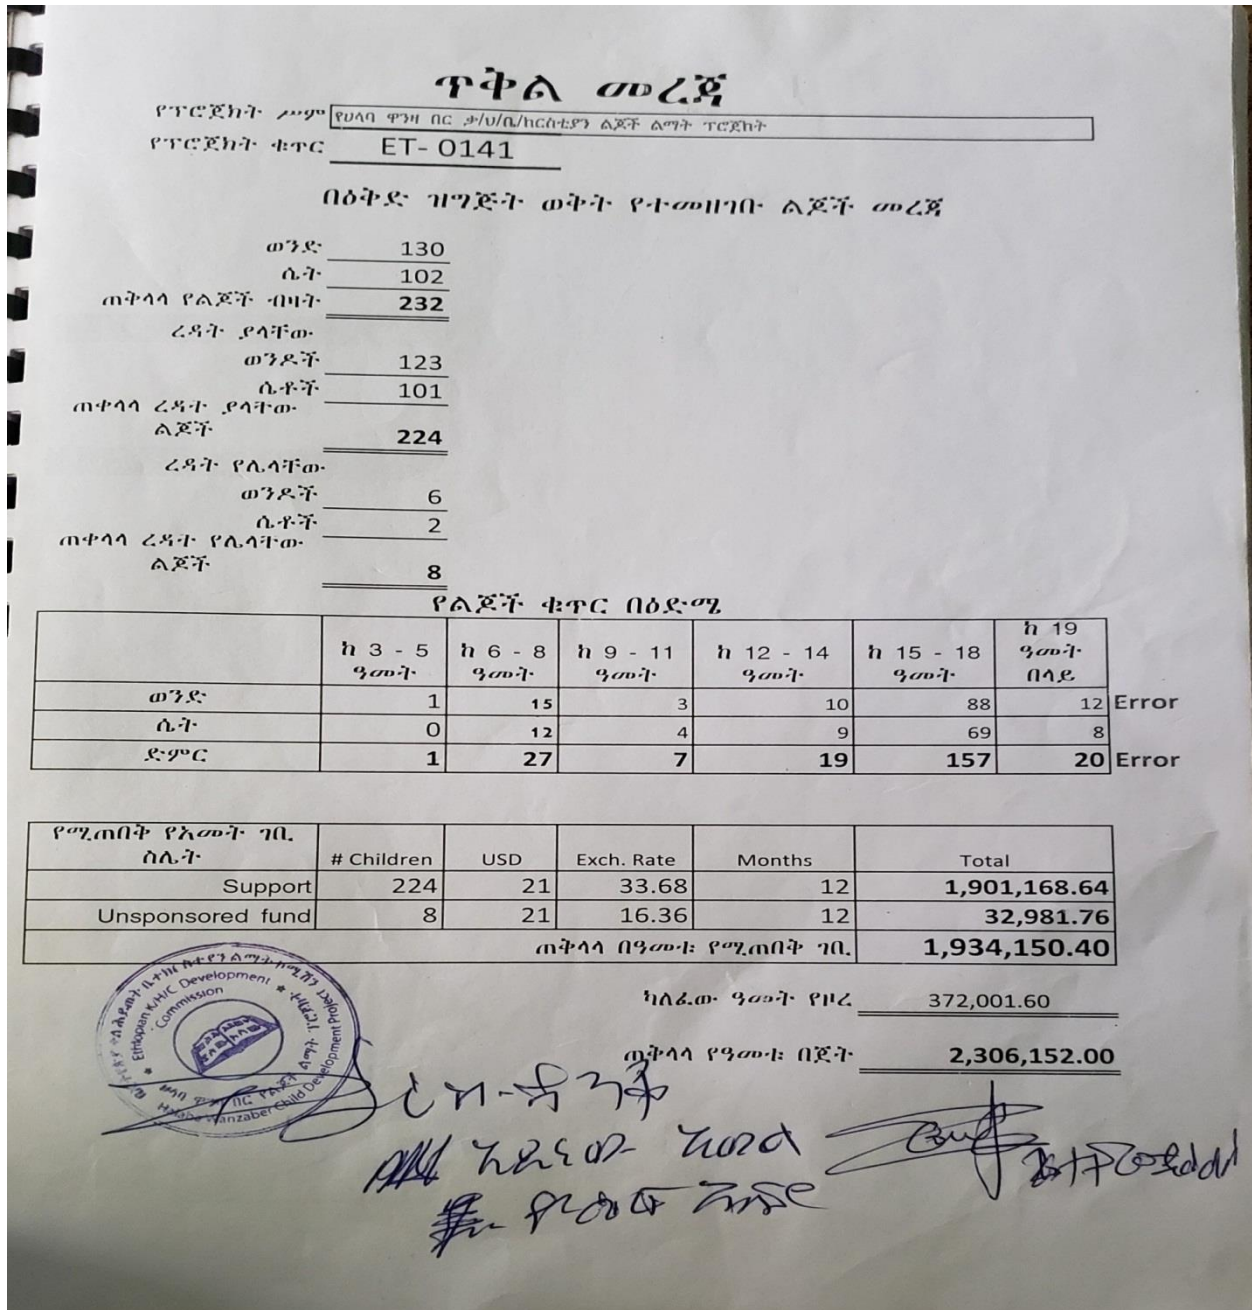 ጥቅል መረጃ
የፕሮጀክት ሥም የሀላባ ዋንዛ በር ቃ/ህ/ቤ/ክርስቲያን ልጆች ልማት ፕሮጀክት
የፕሮጀክት ቁጥር ET- 0141
በዕቅድ ዝግጅት ወቅት የተመዘገቡ ልጆች መረጃ
ወንድ 130
ሴት 102
ጠቅላላ የልጆች ብዛት 232
ረዳት ያላቸው
ወንዶች 123
ሴቶች 101
ጠቀላላ ረዳት ያላቸው
ልጆች 224
ረዳት የሌላቸው
ወንዶች 6
ሴቶች 2
ጠቀላላ ረዳት የሌላቸው
ልጆች 8
የልጆች ቁጥር በዕድሜ
ከ 3 - 5 ዓመት ከ 6 - 8 ዓመት ከ 9 - 11 ዓመት ከ 12 - 14 ዓመት ከ 15 - 18 ዓመት ከ 19 ዓመት በላይ
ወንድ 1 15 3 10 88 12 Error
ሴት 0 12 4 9 69 8
ድምር 1 27 7 19 157 20 Error
የሚጠበቅ የአመት ገቢ ስሌት # Children USD Exch. Rate Months Total
Support 224 21 33.68 12 1,901,168.64
Unsponsored fund 8 21 16.36 12 32,981.76
ጠቅላላ በዓመቱ የሚጠበቅ ገቢ 1,934,150.40
ካለፈው ዓመት የዞረ 372,001.60
ጧቅላላ የዓመቱ በጀት 2,306,152.00
Ethiopian K/H/C Development Commission
Halaba Wanzaber Child Development Project